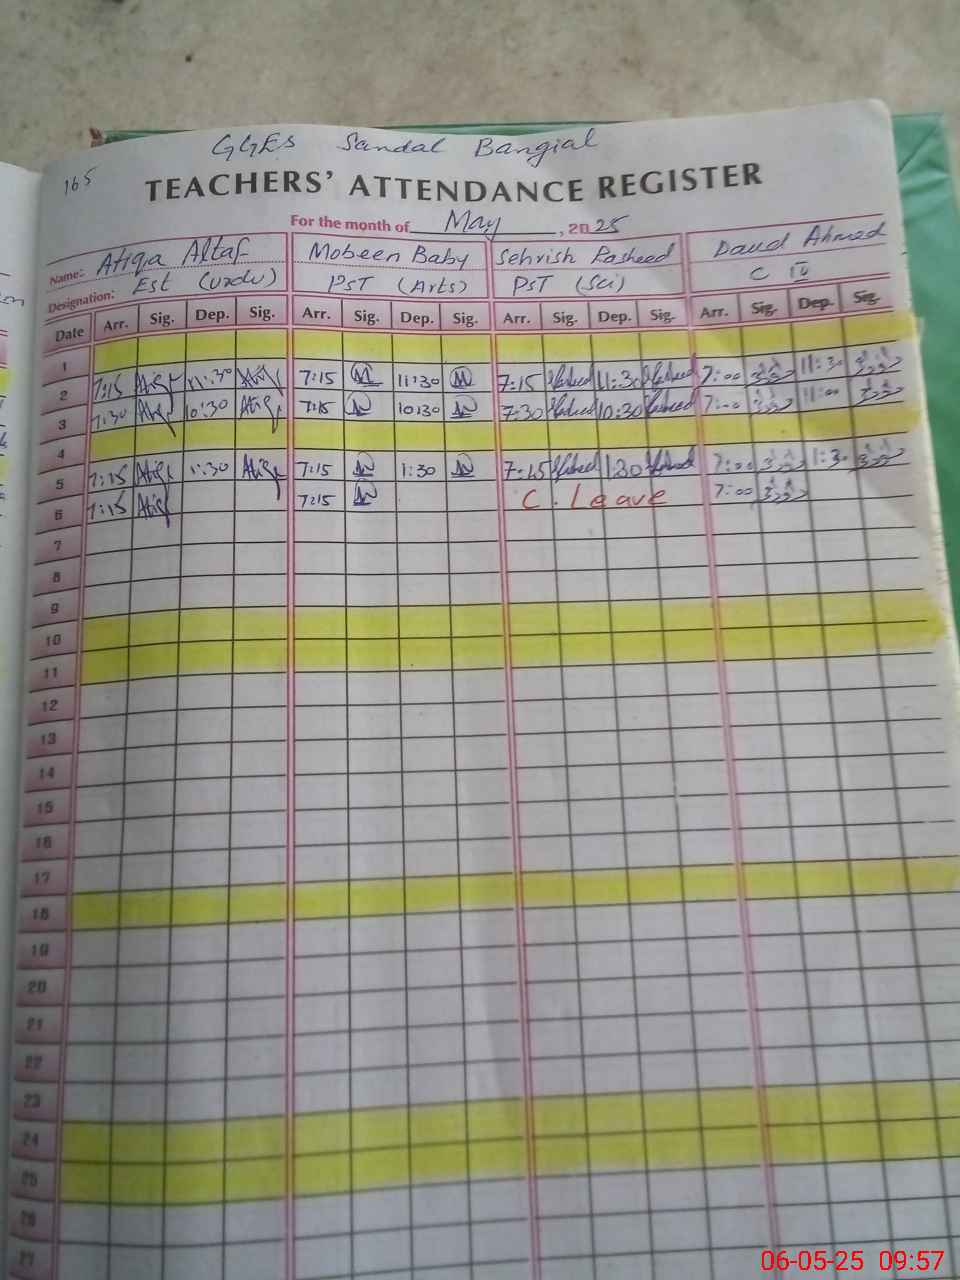 165
GGES Sandal Bangial
TEACHERS' ATTENDANCE REGISTER
For the month of May, 2025
Name: Atiqa Altaf Mobeen Baby Sehrish Rasheed Daud Ahmed
Designation: Est (urdu) PST (Arts) PST (Sci) C IV
Date Arr. Sig. Dep. Sig. Arr. Sig. Dep. Sig. Arr. Sig. Dep. Sig. Arr. Sig. Dep. Sig.
1
2 7:15 Atiq 11:30 Atiq 7:15 11:30 7:15 Rasheed 11:30 Rasheed 7:00 11:30
3 7:30 Atiq 10:30 Atiq 7:15 10:30 7:30 Rasheed 10:30 Rasheed 7:00 11:00
4
5 7:15 Atiq 1:30 Atiq 7:15 1:30 7:15 Rasheed 1:30 Rasheed 7:00 1:30
6 7:15 Atiq 7:15 C. Leave 7:00
7
8
9
10
11
12
13
14
15
16
17
18
19
20
21
22
23
24
25
26
27
06-05-25 09:57